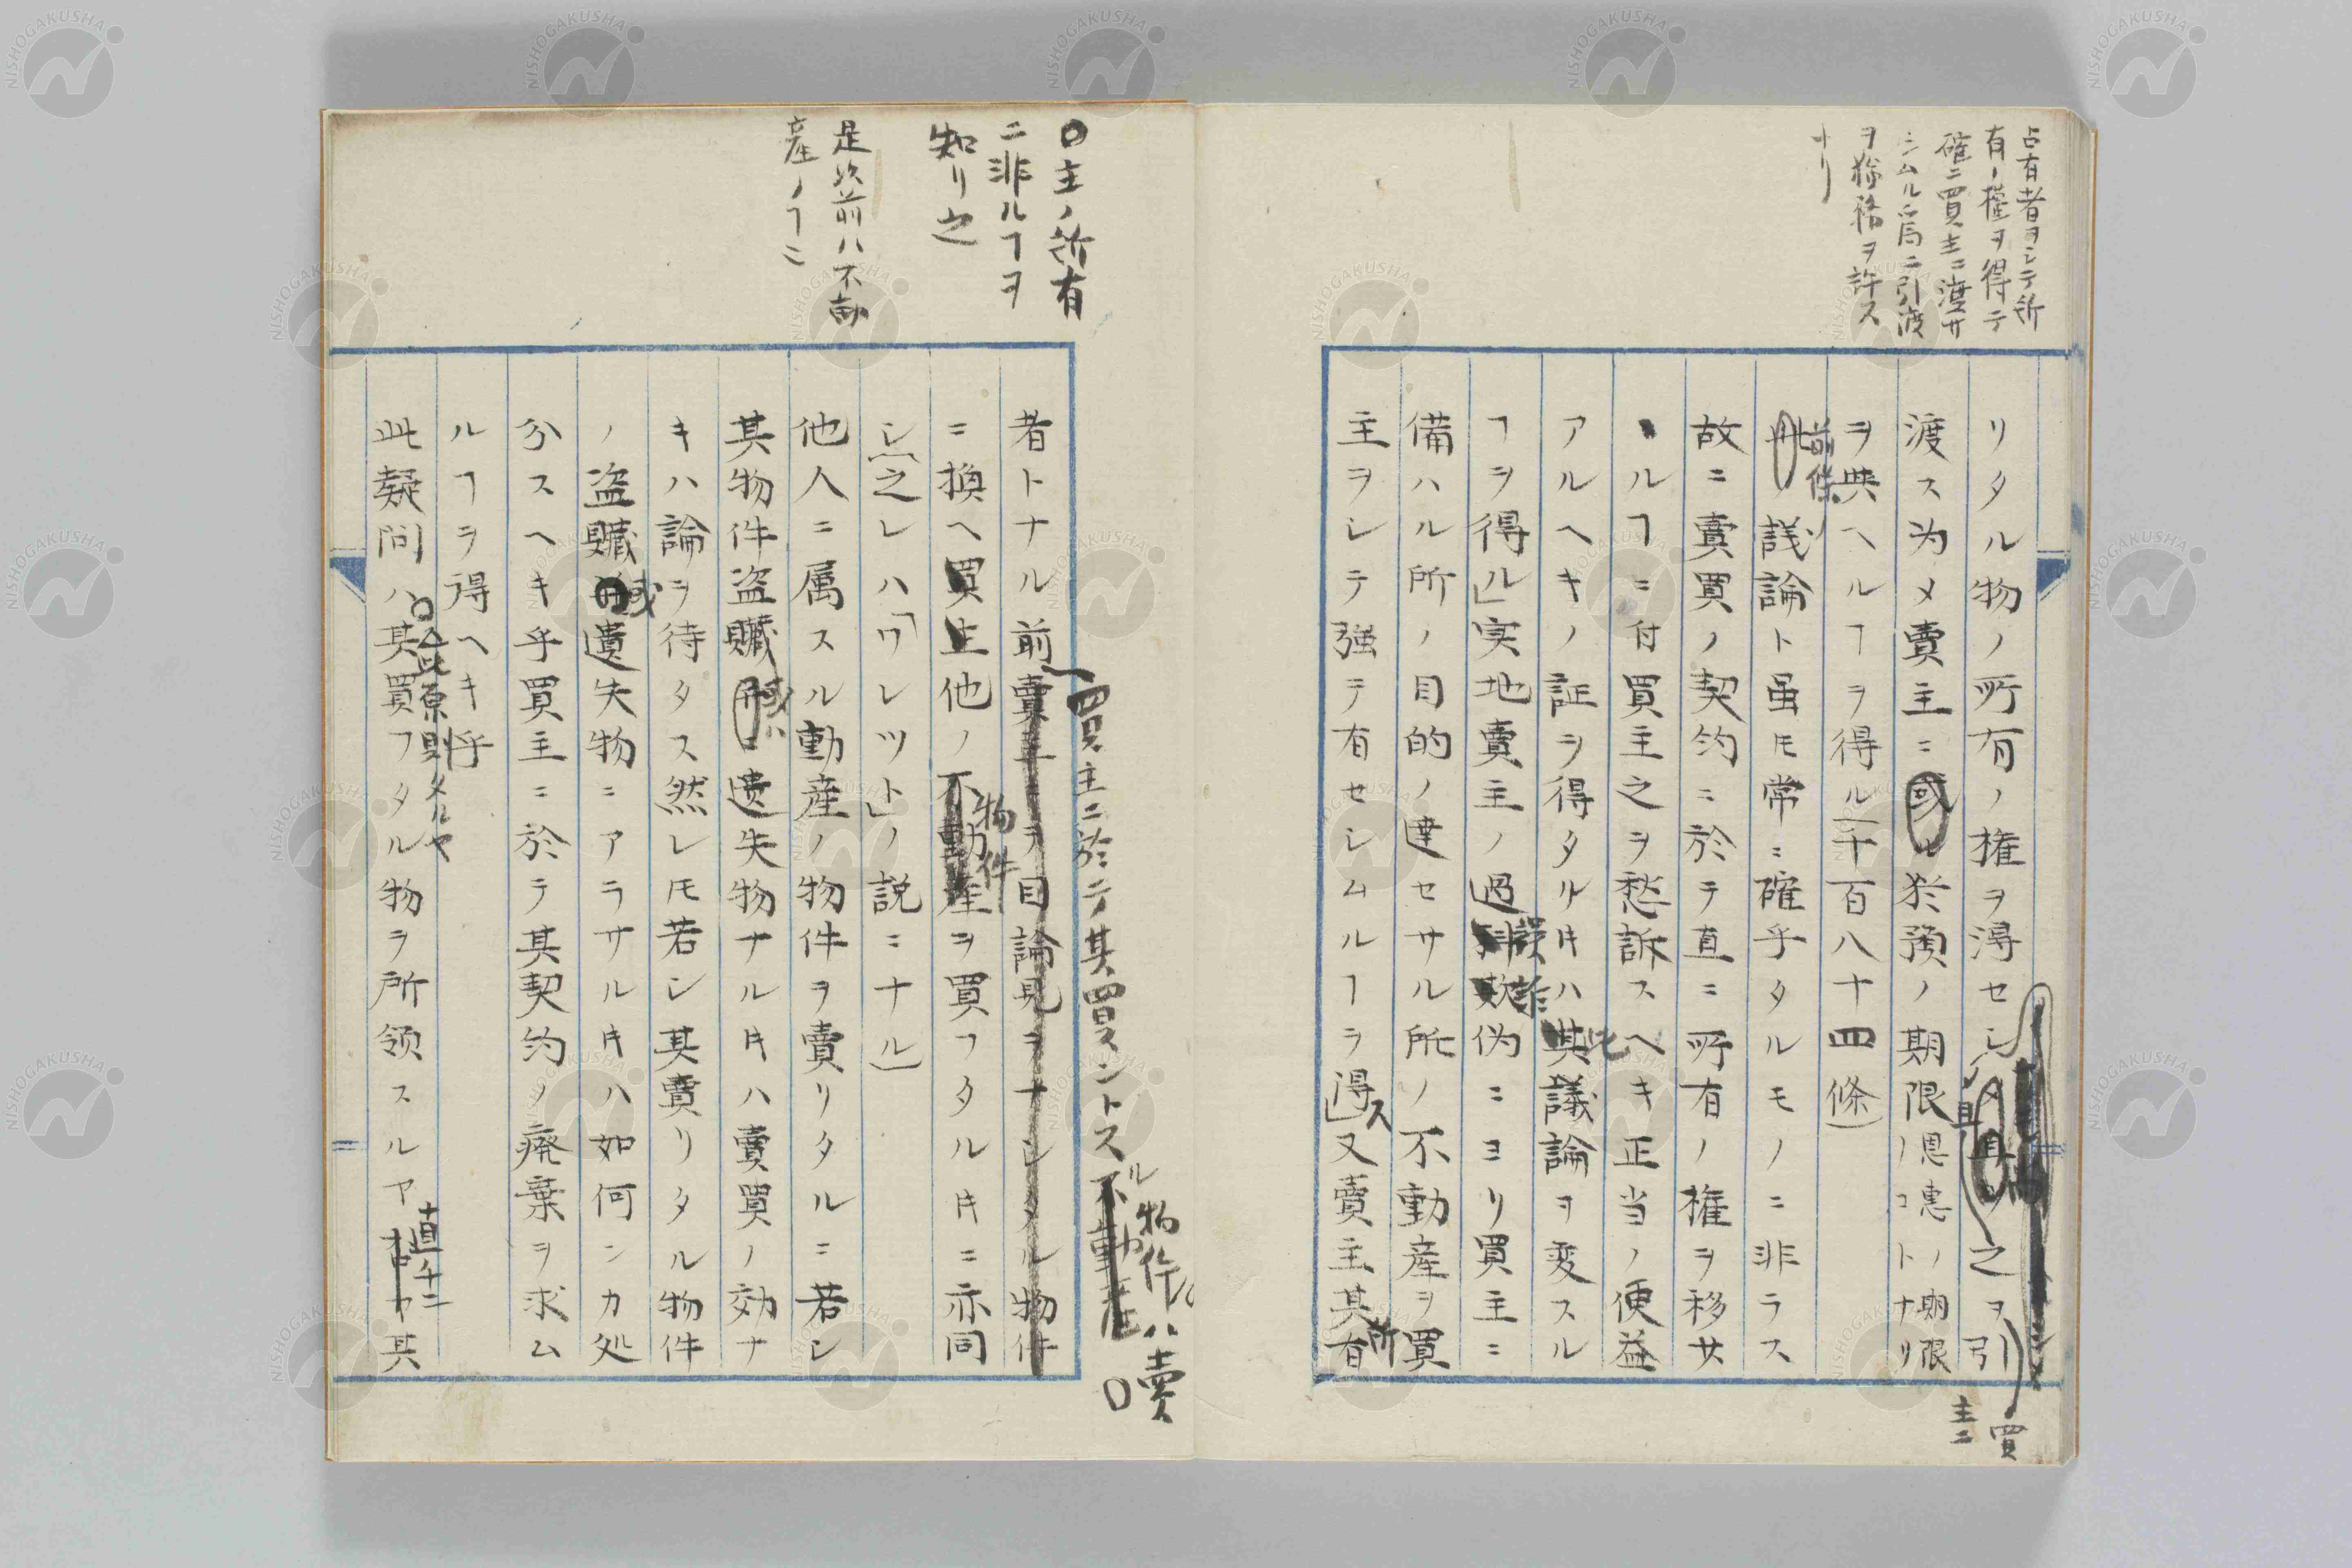 占有者ヲシテ所
有ノ權ヲ得テ
確ニ買主ニ渡サ
シムル為ニ引渡
ヲ猶豫ヲ許ス
ナリ
リタル物ノ所有ノ権ヲ得セシメ且之ヲ引
買
主ニ
渡ス为メ賣主ニ或ル猶預ノ期限恩恵ノ期限ノコトナリ
ヲ與ヘルヿヲ得ル(千百八十四條)
前條ノ議論ト虽𪜈常ニ確乎タルモノニ非ラス
故ニ賣買ノ契約ニ於テ直ニ所有ノ権ヲ移サ
ルヿニ付買主之ヲ愁訴スヘキ正当ノ便益
アルヘキノ証ヲ得タル𪜈ハ此議論ヲ変スル
ヿヲ得ル」実地賣主ノ過誤詐偽ニヨリ買主ニ
備ハル所ノ目的ノ達セサル所ノ不動産ヲ買
主ヲシテ強テ有セシムルヿヲ得ス」又賣主其所有
〇主ノ所有
ニ非ルヿヲ
知リ之
是迄前ハ不動
産ノヿニ
買主ニ於テ其買ハントスル物件ハ賣〇
者トナル前賣主ヲ目論見ヲナシタル物件
ニ換ヘ買主他ノ物件ヲ買フタルキニ亦同
シ(之レハ「ワレツト」ノ説ニナル)
他人ニ属スル動産ノ物件ヲ賣リタルニ若シ
其物件盗贓或ハ遺失物ナルキハ賣買ノ効ナ
キハ論ヲ待タス然レ𪜈若シ其賣リタル物件
ノ盗贓或遺失物ニアラサルキハ如何ンカ処
分スヘキ乎買主ニ於テ其契約ノ癈棄ヲ求ム
ルヿヲ得ヘキ乎
〇此原則タルヤ
此疑問ハ其買フタル物ヲ所領スルヤ直チニ其